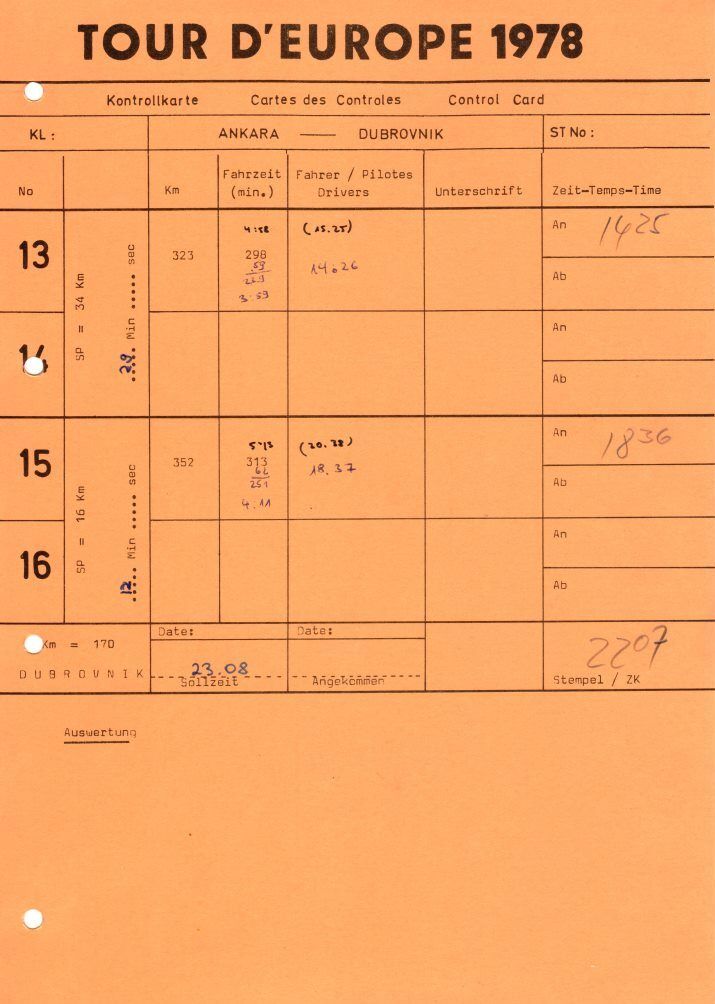 TOUR D'EUROPE 1978
Kontrollkarte Cartes des Controles Control Card
KL : ANKARA — DUBROVNIK ST No :
No Km Fahrzeit (min.) Fahrer / Pilotes Drivers Unterschrift Zeit-Temps-Time
13
SP = 34 Km
29. Min ..... sec
323
4:58
298
59
3:59
(15.25)
14.26
An 1425
Ab
An
Ab
15
SP = 16 Km
12. Min ..... sec
352
5:13
313
62
251
4.11
(20.38)
18.37
An 1836
Ab
16
An
Ab
Km = 170
DUBROVNIK
Date:
23.08
Sollzeit
Date:
Angekommen
2207
Stempel / ZK
Auswertung